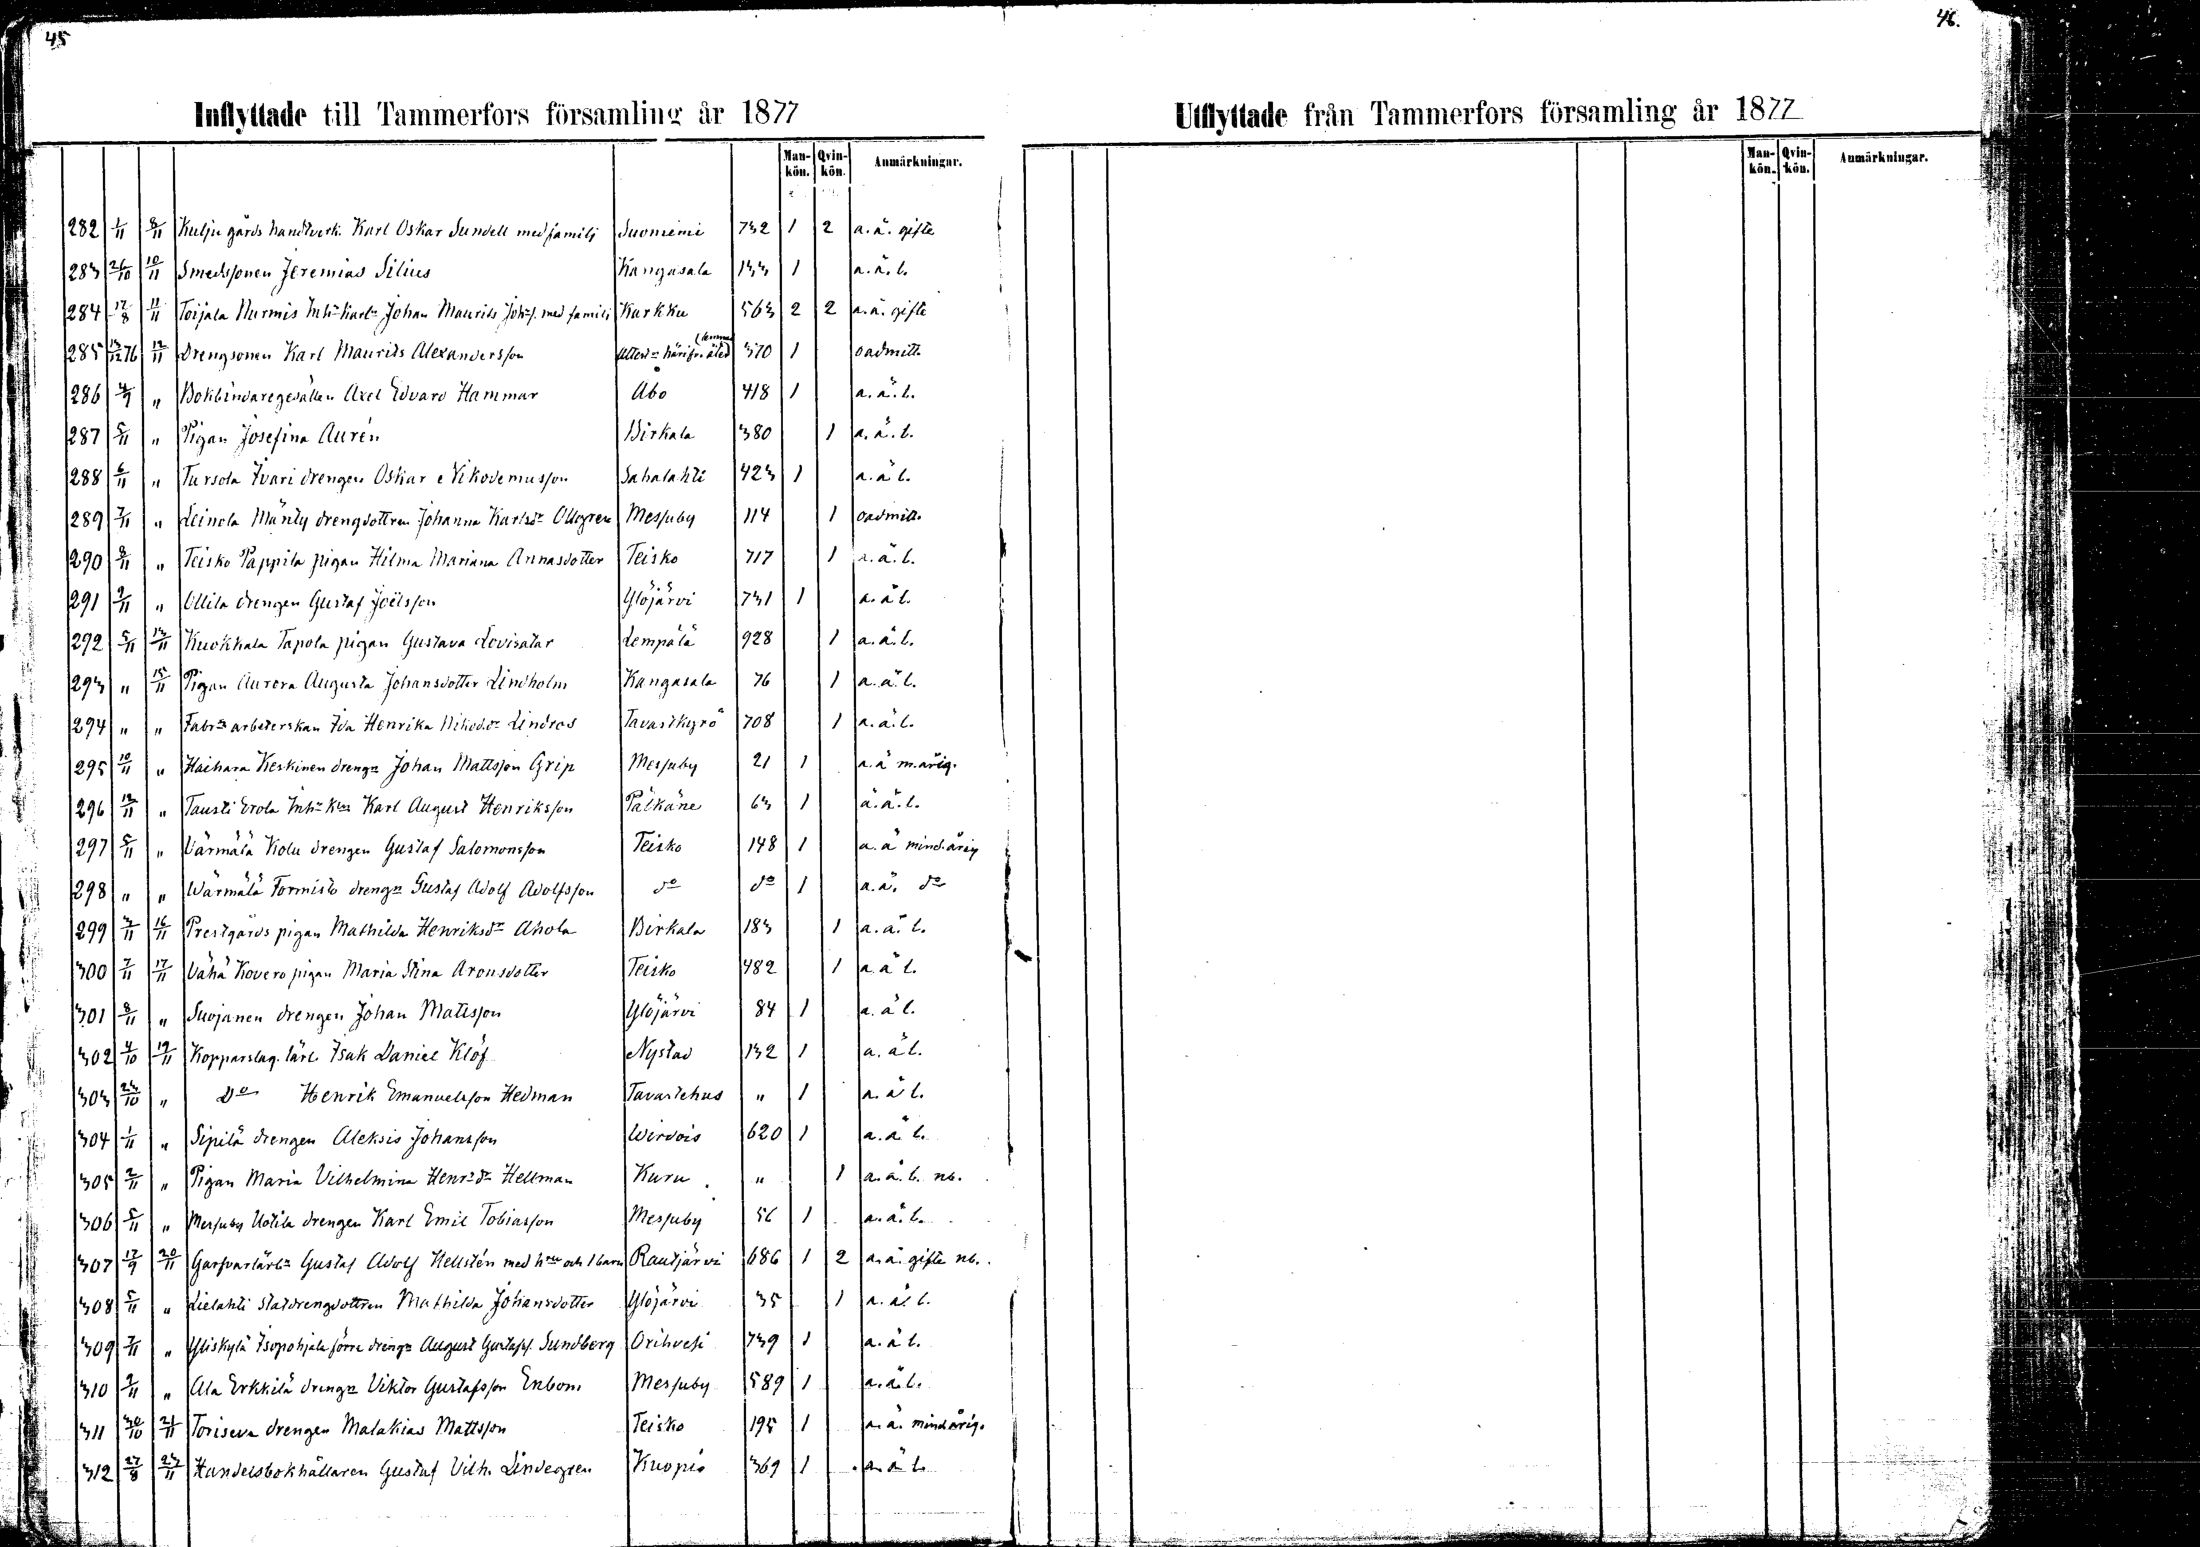 45
Inflyttade till Tammerfors församling år 1877
Man-kön. Qvin-kön. Anmärkningar.
282 1/11 8/11 Kulju gårds handtverk. Karl Oskar Sundell med familj Suoniemi 732 1 2 a.ä. gifte
283 26/10 10/11 Smedssonen Jeremias Silius Kangasala 133 1 a.ä.l.
284 17/8 11/11 Toijala Nurmis Inhs karln Johan Maurits Johss. med familj Karkku 563 2 2 a.ä. gifte
285 13/12 76 12/11 Drengsonen Karl Maurits Alexandersson härifr. 370 1 oadmitt.
286 4/9 " Bokbindaregesällen Axel Edvard Hammar Åbo 418 1 a.ä.l.
287 5/11 " Pigan Josefina Aurén Birkala 380 1 a.ä.l.
288 6/11 " Tursola Ivari drengen Oskar Nikodemusson Sahalahti 423 1 a.ä l.
289 7/11 " Leinola Mänty drengdottren Johanna Karlsdr Ollgren Messuby 114 1 oadmitt.
290 8/11 " Teisko Pappila pigan Hilma Mariana Annasdotter Teisko 717 1 a.ä.l.
291 9/11 " Ollila drengen Gustaf Joëlsson Ylöjärvi 731 1 a.ä l.
292 5/11 13/11 Kuokkala Tapola pigan Gustava Lovisatar Lempälä 928 1 a.ä.l.
293 " 15/11 Pigan Aurora Augusta Johansdotter Lindholm Kangasala 76 1 a.ä.l.
294 " " Fabrs arbeterskan Ida Henrika Nikod.dr Lindros Tavastkyrö 708 1 a.ä.l.
295 10/11 " Haihara Keskinen drengn Johan Mattsson Grip Messuby 21 1 a.ä m.årig.
296 12/11 " Tausti Erola Inhs kn Karl August Henriksson Pälkäne 63 1 a.ä.l.
297 5/11 " Värmälä Kolu drengen Gustaf Salomonsson Teisko 148 1 a.ä mind.årig
298 " " Wärmälä Formisto drengn Gustaf Adolf Adolfsson do do 1 a.ä. do
299 3/11 16/11 Prestgårds pigan Mathilda Henriksdr Ahola Birkala 183 1 a.ä. l.
300 7/11 17/11 Vähä Kovero pigan Maria Stina Aronsdotter Teisko 482 1 a.ä l.
301 8/11 " Suojanen drengen Johan Matsson Ylöjärvi 84 1 a.ä l.
302 4/10 19/11 Kopparslag. lärl. Isak Daniel Klöf Nystad 132 1 a.ä l.
303 23/10 " Do Henrik Emanuelsson Hedman Tavastehus " 1 a.ä l.
304 1/11 " Sipilä drengen Aleksis Johansson Wirdois 620 1 a.ä l.
305 2/11 " Pigan Maria Vilhelmina Henrsdr Hellman Kuru " 1 a.ä.l. nb.
306 5/11 " Messuby Uotila drengen Karl Emil Tobiasson Messuby 56 1 a.ä.l.
307 17/9 20/11 Garfvarlärln Gustaf Adolf Hellstén med hru och 1 barn Rautjärvi 686 1 2 a.ä. gifte nb.
308 5/11 " Lielahti statdrengdottren Mathilda Johansdotter Ylöjärvi 35 1 a.ä l.
309 7/11 " Yliskylä Isopohjala förre drengn August Gustafss. Sundberg Orihvesi 739 1 a.ä l.
310 9/11 " Ala Erkkilä drengn Viktor Gustafsson Enbom Messuby 589 1 a.ä.l.
311 30/10 21/11 Toriseva drengen Malakias Mattsson Teisko 195 1 a.ä. mindårig.
312 27/8 23/11 Handelsbokhållaren Gustaf Vilh. Lindegren Kuopio 369 1 a.ä l.
46.
Utflyttade från Tammerfors församling år 1877
Man-kön. Qvin-kön. Anmärkningar.